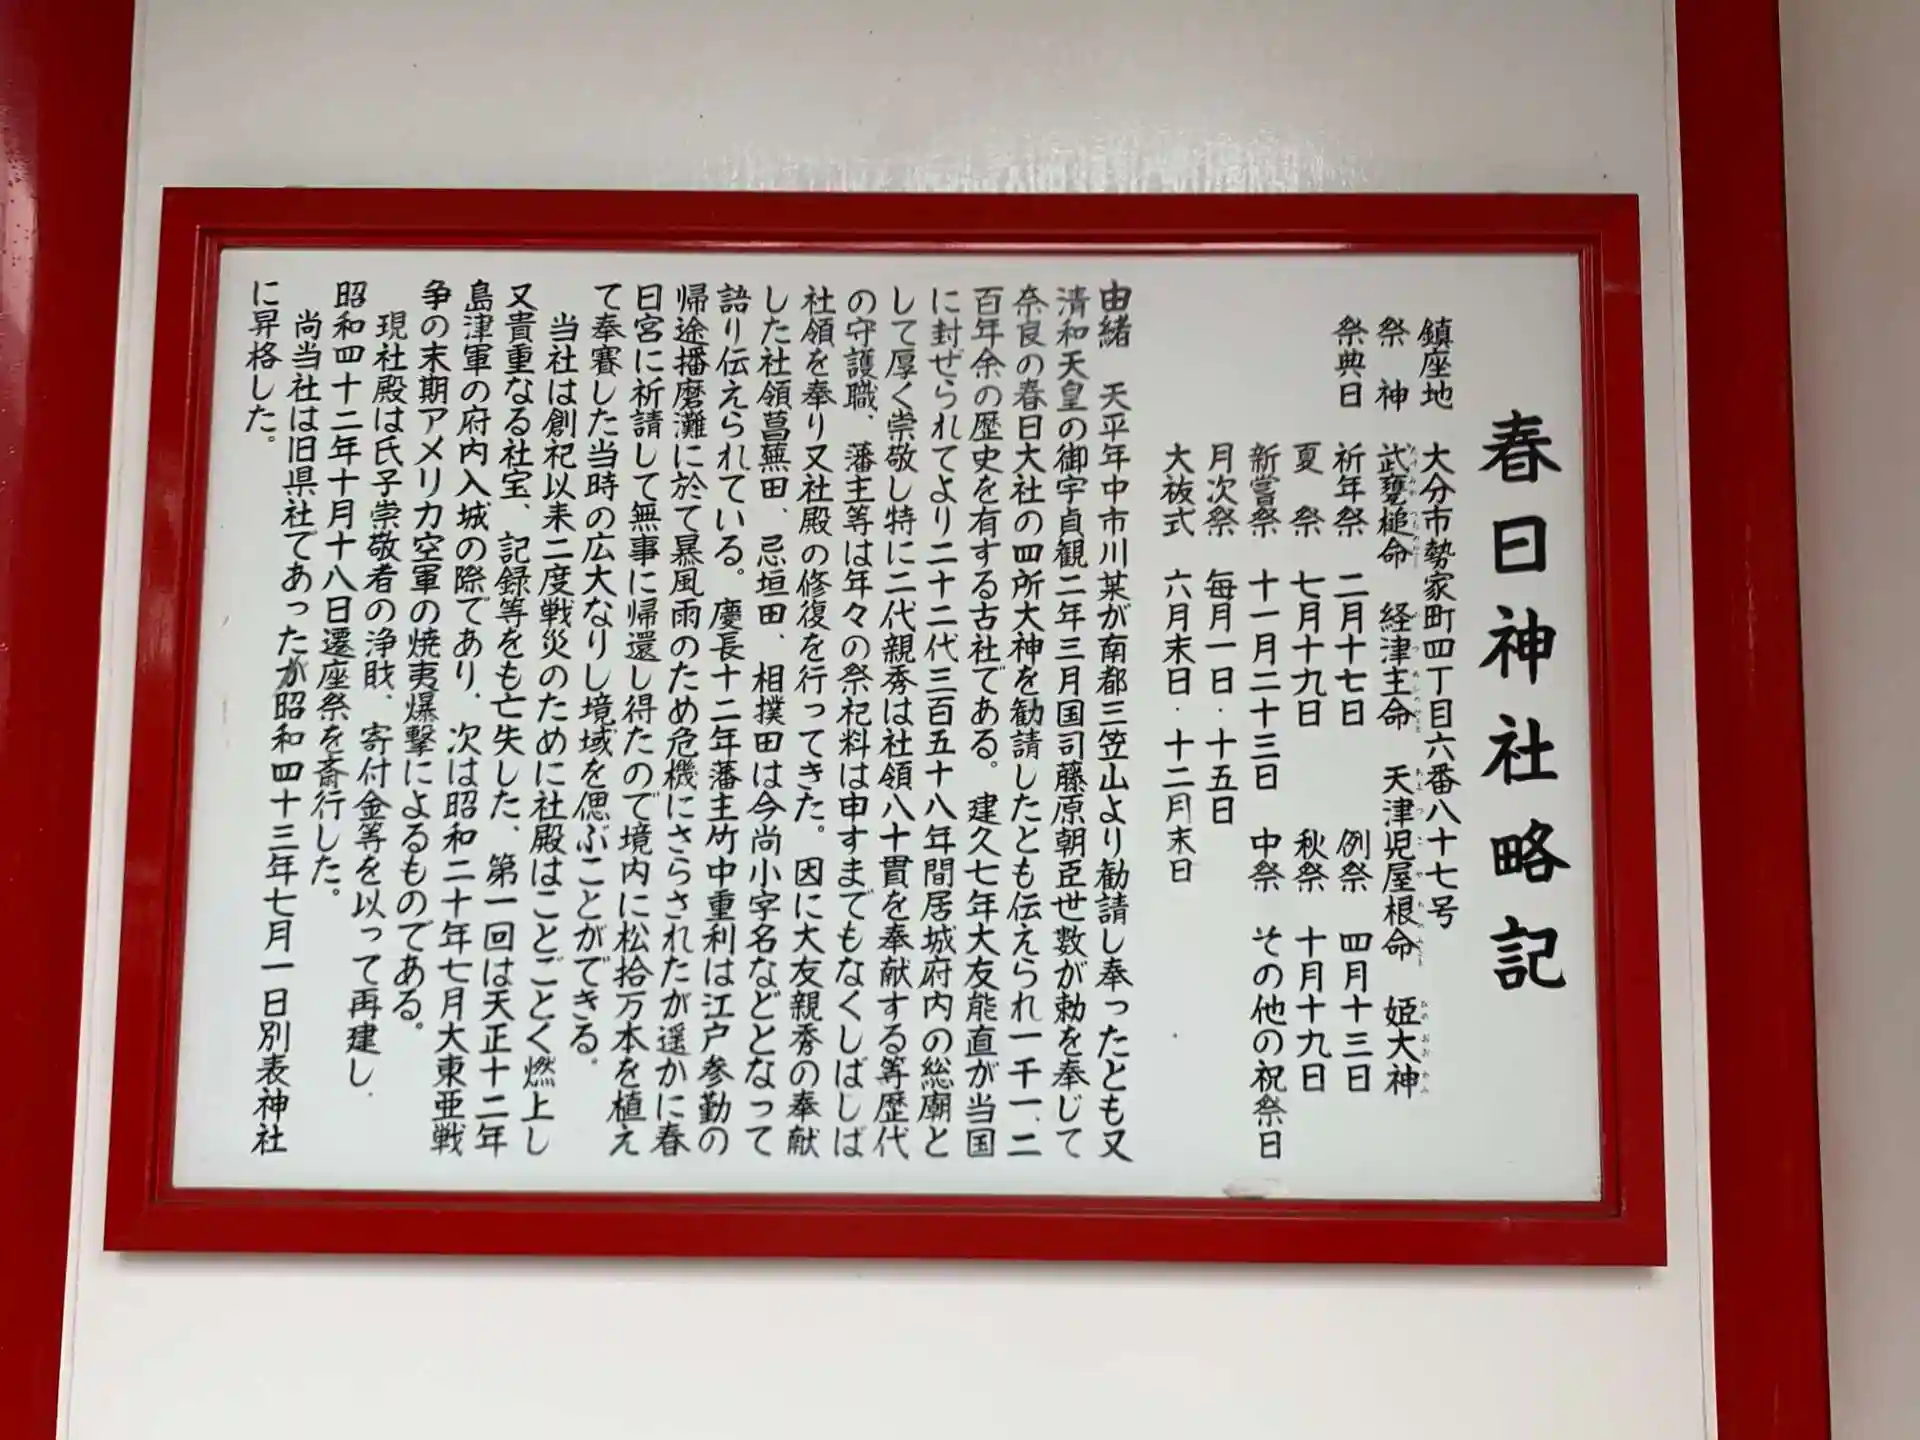 春日神社略記
鎮座地　大分市勢家町四丁目六番八十七号
祭　神　武甕槌命　経津主命　天津児屋根命　姫大神
祭典日　祈年祭　二月十七日　例祭　四月十三日
夏　祭　七月十九日　秋祭　十月十九日
新嘗祭　十一月二十三日　中祭　その他の祝祭日
月次祭　毎月一日・十五日
大祓式　六月末日・十二月末日
由緒　天平年中市川某が南都三笠山より勧請し奉ったとも又
清和天皇の御宇貞観二年三月国司藤原朝臣世数が勅を奉じて
奈良の春日大社の四所大神を勧請したとも伝えられ一千一、二
百年余の歴史を有する古社である。建久七年大友能直が当国
に封ぜられてより二十二代三百五十八年間居城府内の総廟と
して厚く崇敬し特に二代親秀は社領八十貫を奉献する等歴代
の守護職、藩主等は年々の祭祀料は申すまでもなくしばしば
社領を奉り又社殿の修復を行ってきた。因に大友親秀の奉献
した社領菖蕪田、忌垣田、相撲田は今尚小字名などとなって
語り伝えられている。慶長十二年藩主竹中重利は江戸参勤の
帰途播磨灘に於て暴風雨のため危機にさらされたが遥かに春
日宮に祈請して無事に帰還し得たので境内に松拾万本を植え
て奉賽した当時の広大なりし境域を偲ぶことができる。
当社は創祀以来二度戦災のために社殿はことごとく燃上し
又貴重なる社宝、記録等をも亡失した、第一回は天正十二年
島津軍の府内入城の際であり、次は昭和二十年七月大東亜戦
争の末期アメリカ空軍の焼夷爆撃によるものである。
現社殿は氏子崇敬者の浄財、寄付金等を以って再建し、
昭和四十二年十月十八日遷座祭を斎行した。
尚当社は旧県社であったが昭和四十三年七月一日別表神社
に昇格した。